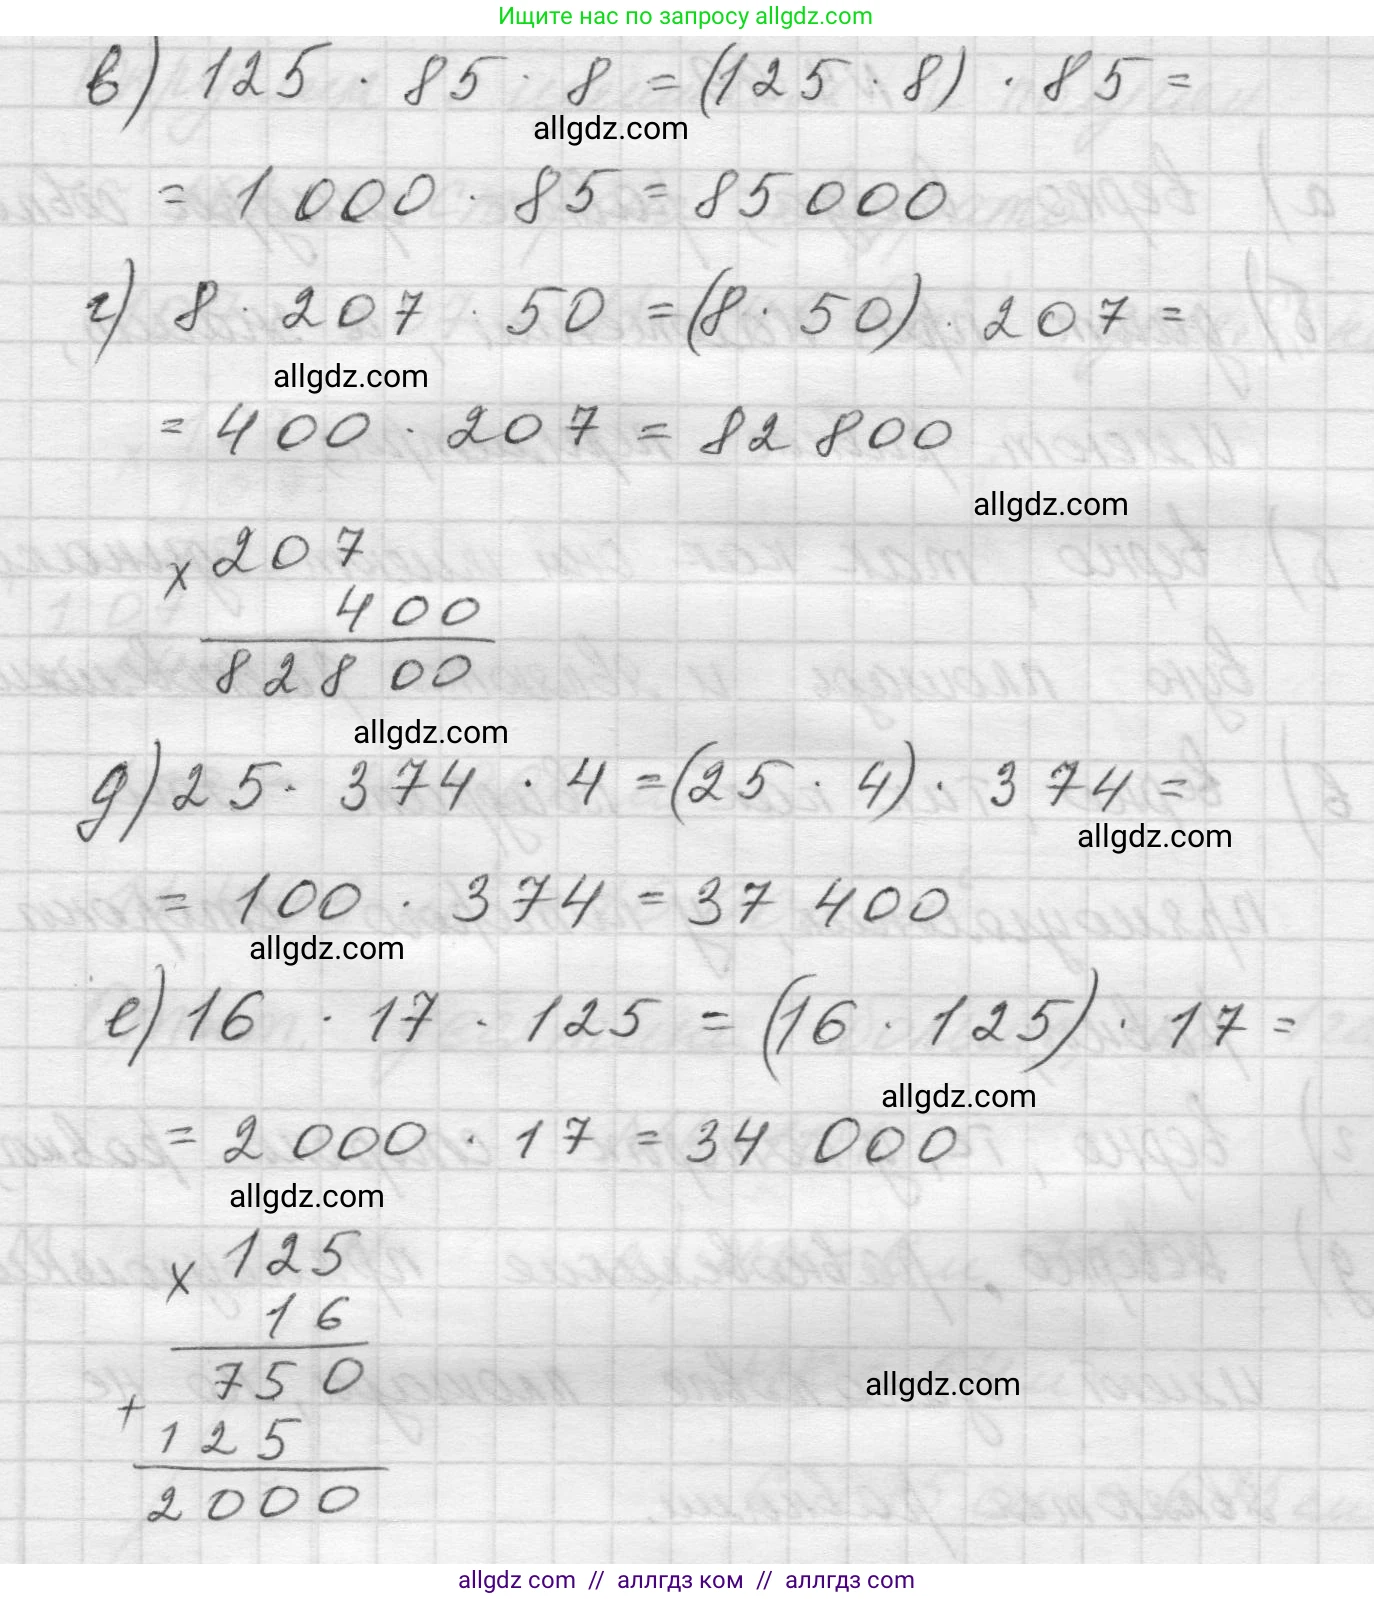 Ищите нас по запросу allgdz.com
в) 125 · 85 · 8 = (125 · 8) · 85 =
allgdz.com
= 1 000 · 85 = 85 000
г) 8 · 207 · 50 = (8 · 50) · 207 =
allgdz.com
= 400 · 207 = 82 800
allgdz.com
× 207
400
82800
allgdz.com
д) 25 · 374 · 4 = (25 · 4) · 374 =
allgdz.com
= 100 · 374 = 37 400
allgdz.com
е) 16 · 17 · 125 = (16 · 125) · 17 =
allgdz.com
= 2 000 · 17 = 34 000
allgdz.com
× 125
16
750
allgdz.com
+
125
2000
allgdz com // аллгдз ком // аллгдз com